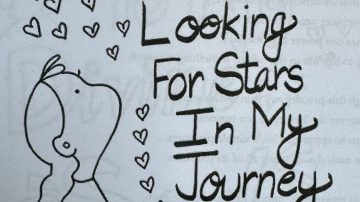 Looking
For Stars
In My
Journey